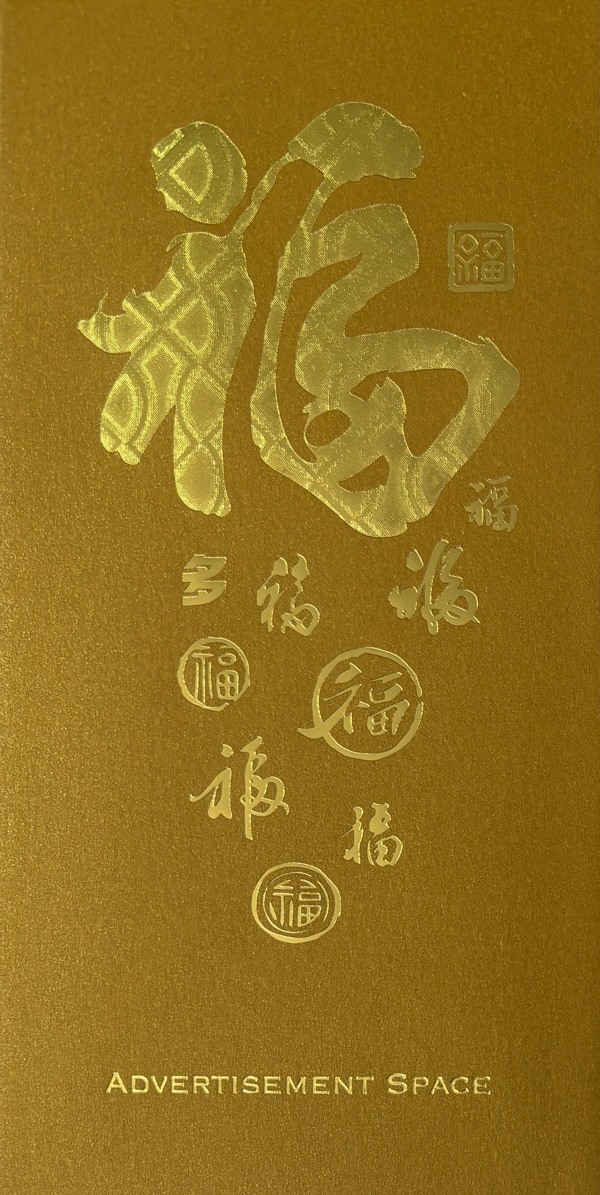 福
福
福
多 福 福
福 福
福
福
福
ADVERTISEMENT SPACE